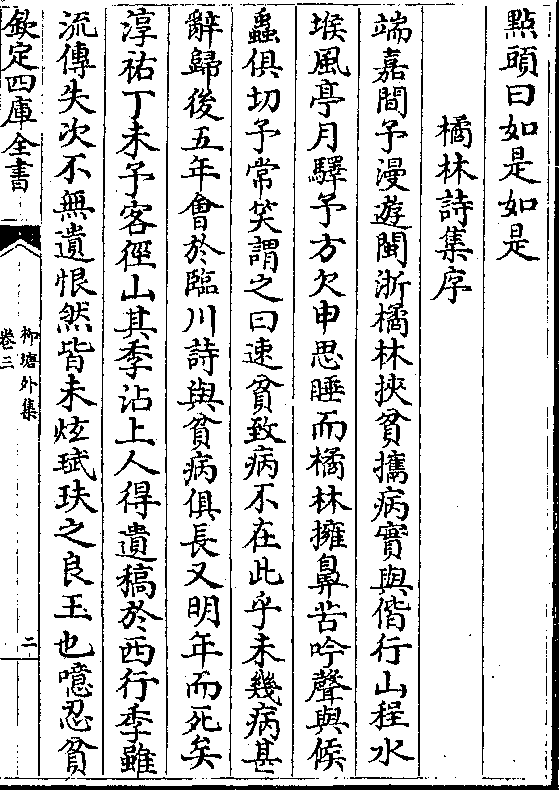 點頭曰如是如是
橘林詩集序
端嘉間予漫遊閩浙橘林挾貧攜病實與偕行山程水
堠風亭月驛予方欠申思睡而橘林擁鼻苦吟聲與候
蟲俱切予常笑謂之曰速貧致病不在此乎未幾病甚
辭歸後五年會於臨川詩與貧病俱長又明年而死矣
淳祐丁未予客徑山其季沾上人得遺稿於西行季雖
流傳失次不無遺恨然皆未炫珷玞之良玉也噫忍貧
欽定四庫全書
柳塘外集
卷三
二